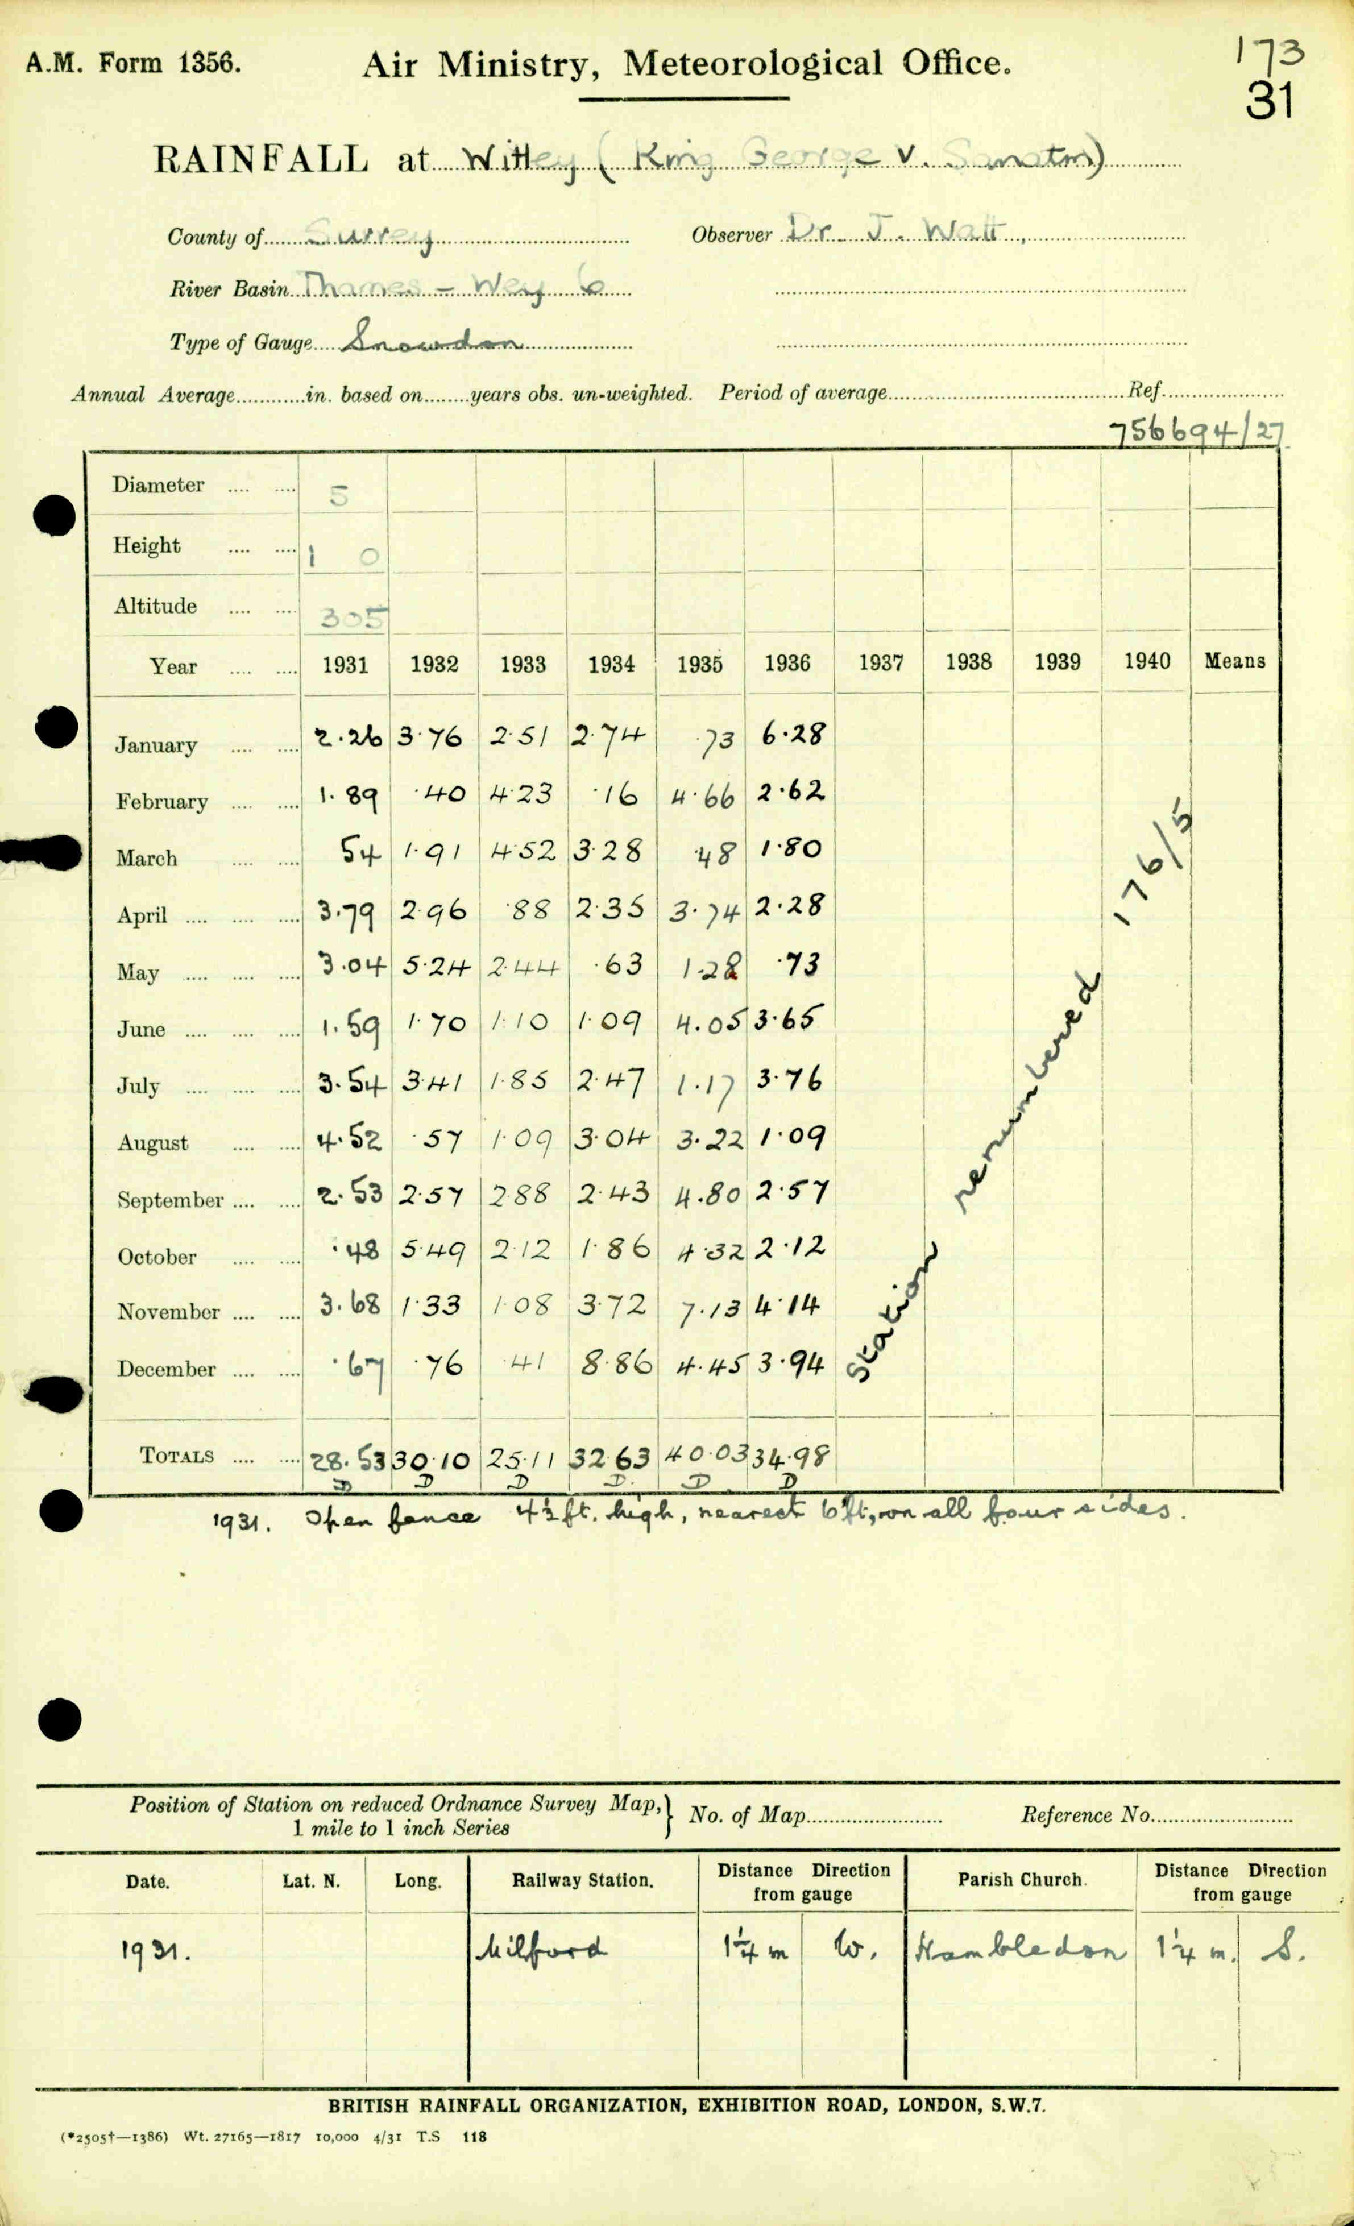 A.M. Form 1356.
Air Ministry, Meteorological Office.
173
31
RAINFALL at Witley (King George V. Sanatm)
County of Surrey Observer Dr. J. Watt,
River Basin Thames - Wey 6
Type of Gauge Snowdon
Annual Average............in. based on........years obs. un-weighted. Period of average............Ref............
756694/27
Diameter .... .... 5
Height .... .... 1 0
Altitude .... .... 305
Year .... .... 1931 1932 1933 1934 1935 1936 1937 1938 1939 1940 Means
January .... .... 2.26 3.76 2.51 2.74 .73 6.28
February .... .... 1.89 .40 4.23 .16 4.66 2.62
March .... .... 54 1.91 4.52 3.28 .48 1.80
April .... .... .... 3.79 2.96 .88 2.35 3.74 2.28
May .... .... .... 3.04 5.24 2.44 .63 1.28 .73
June .... .... .... 1.59 1.70 1.10 1.09 4.05 3.65
July .... .... .... 3.54 3.41 1.85 2.47 1.17 3.76
August .... .... 4.52 .57 1.09 3.04 3.22 1.09
September .... .... 2.53 2.57 2.88 2.43 4.80 2.57
October .... .... .48 5.49 2.12 1.86 4.32 2.12
November .... .... 3.68 1.33 1.08 3.72 7.13 4.14
December .... .... .67 .76 .41 8.86 4.45 3.94
Station renumbered 176/5
TOTALS .... .... 28.53 30.10 25.11 32.63 40.03 34.98
D D D D. D D
1931. Open fence 4½ ft. high, nearest 6 ft, on all four sides.
Position of Station on reduced Ordnance Survey Map, } No. of Map............ Reference No............
1 mile to 1 inch Series
Date. Lat. N. Long. Railway Station. Distance Direction from gauge Parish Church. Distance Direction from gauge
1931. Milford 1¼ m W. Hambledon 1¼ m. S.
BRITISH RAINFALL ORGANIZATION, EXHIBITION ROAD, LONDON, S.W.7.
(*2505†—1386) Wt. 27165—1817 10,000 4/31 T.S 118